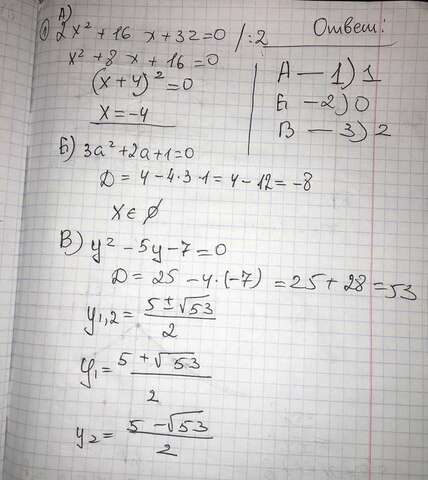 А)
① 2x² + 16 x + 32 = 0 /:2
x² + 8 x + 16 = 0
(x + 4)² = 0
x = -4
Ответ:
А — 1) 1
Б — 2) 0
В — 3) 2
Б) 3a² + 2a + 1 = 0
D = 4 - 4·3·1 = 4 - 12 = -8
x ∈ ∅
В) y² - 5y - 7 = 0
D = 25 - 4·(-7) = 25 + 28 = 53
y₁,₂ = (5 ± √53)/2
y₁ = (5 + √53)/2
y₂ = (5 - √53)/2